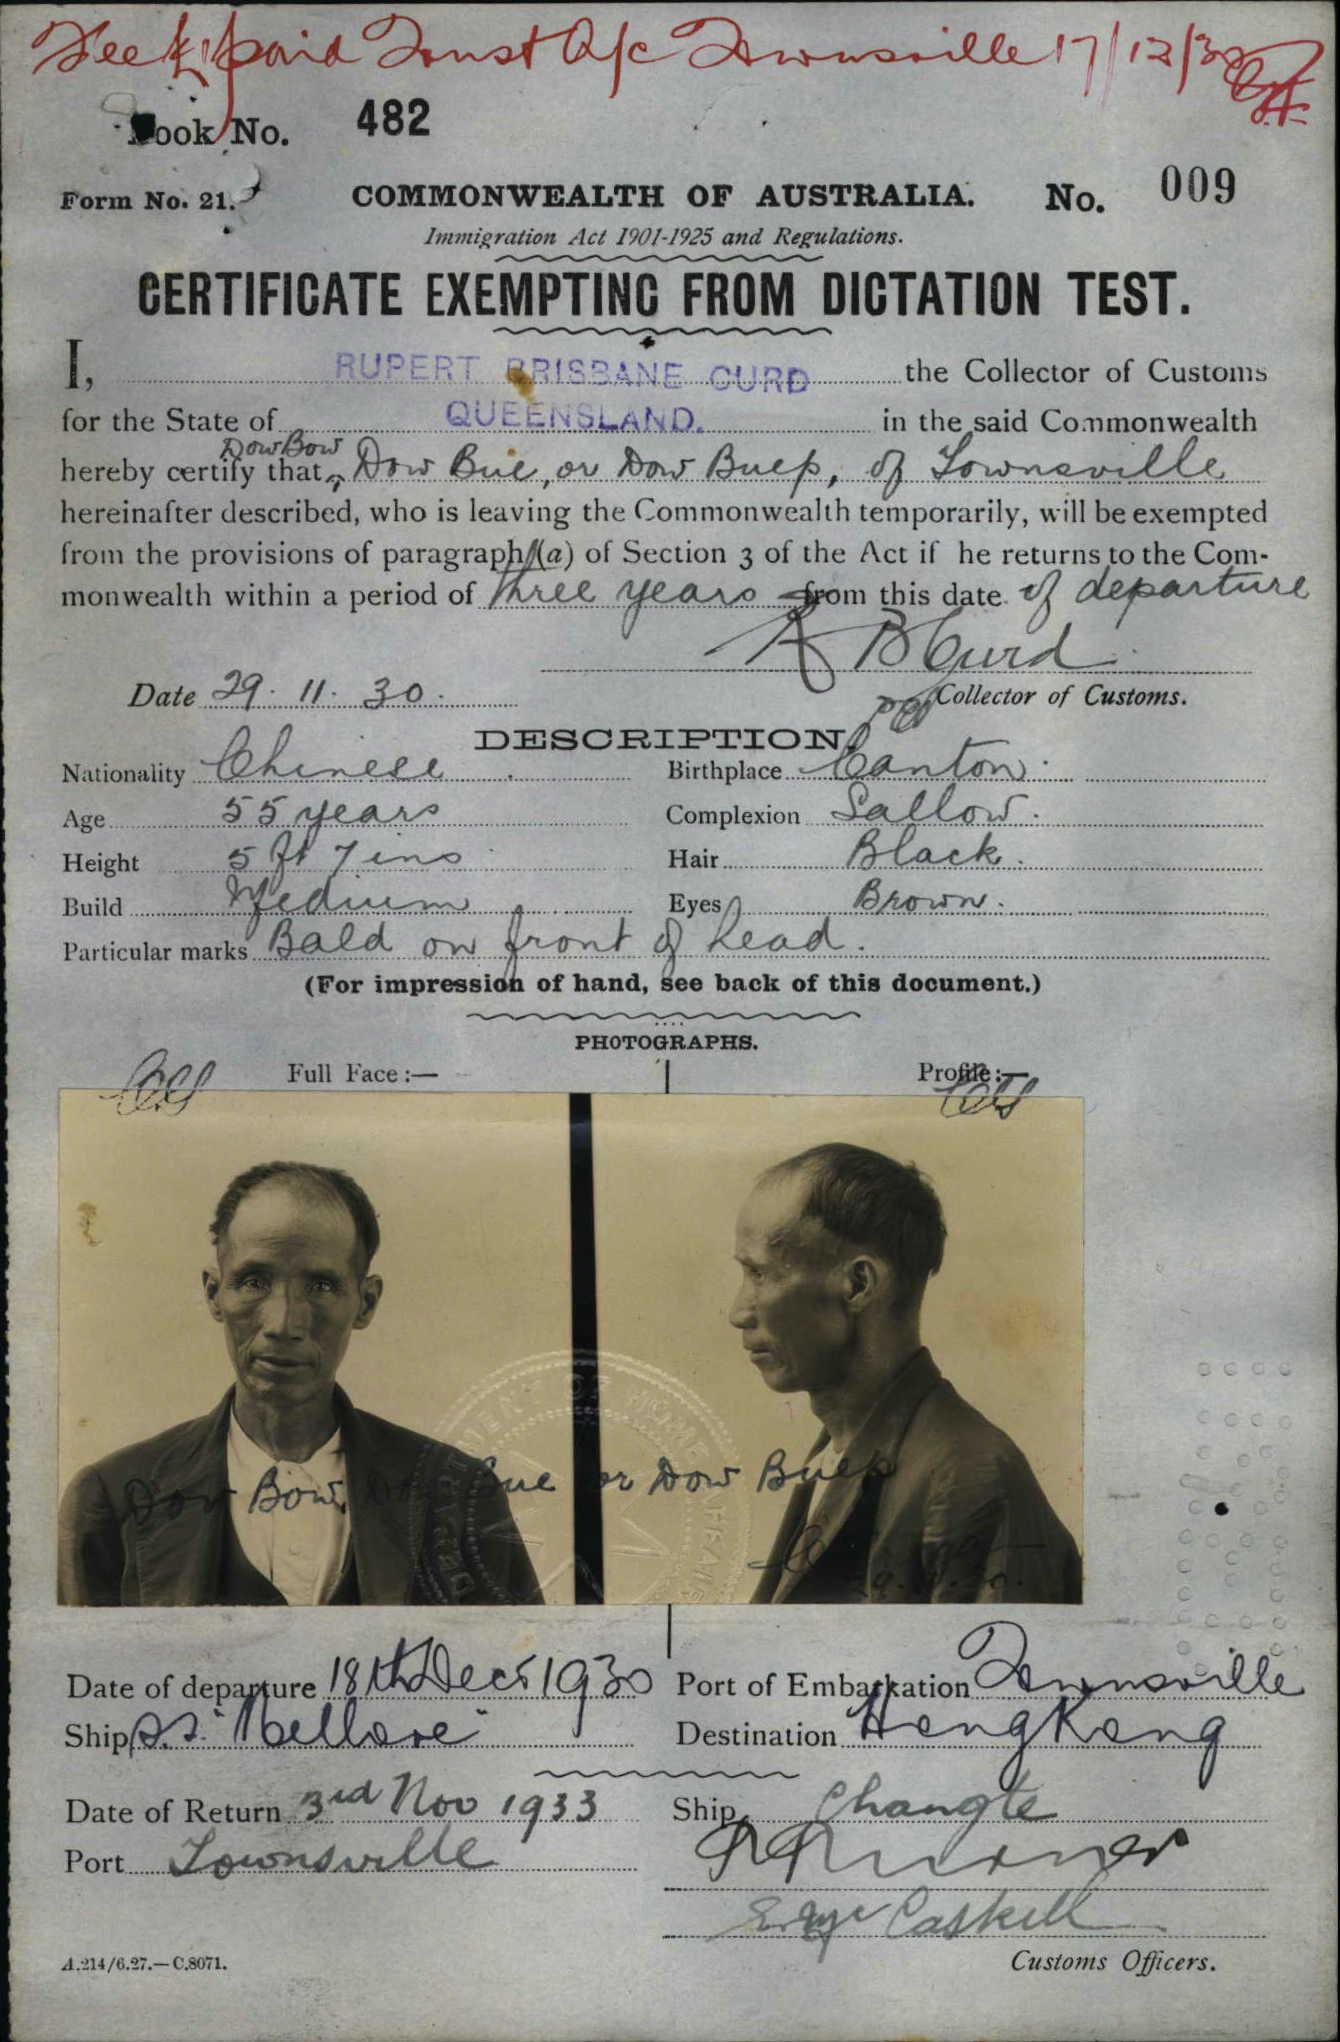 Fee £1 paid Trust A/c Townsville 17/12/30
Book No. 482
Form No. 21. COMMONWEALTH OF AUSTRALIA. No. 009
Immigration Act 1901-1925 and Regulations.
CERTIFICATE EXEMPTING FROM DICTATION TEST.
I, RUPERT BRISBANE CURD the Collector of Customs
for the State of QUEENSLAND. in the said Commonwealth
Dow Bow
hereby certify that Dow Bue, or Dow Buep, of Townsville
hereinafter described, who is leaving the Commonwealth temporarily, will be exempted
from the provisions of paragraph (a) of Section 3 of the Act if he returns to the Com-
monwealth within a period of three years from this date of departure
R B Curd
Date 29. 11. 30. Collector of Customs.
DESCRIPTION.
Nationality Chinese Birthplace Canton.
Age 55 years Complexion Sallow.
Height 5 ft 7 ins Hair Black.
Build Medium Eyes Brown.
Particular marks Bald on front of head.
(For impression of hand, see back of this document.)
PHOTOGRAPHS.
Full Face:— Profile:—
Dow Bow, Dow Bue or Dow Buep
Date of departure 18th Decr 1930 Port of Embarkation Townsville
Ship S.S. "Nellore" Destination Hong Kong
Date of Return 3rd Nov 1933 Ship Changte
Port Townsville
Customs Officers.
A.214/6.27.—C.8071.